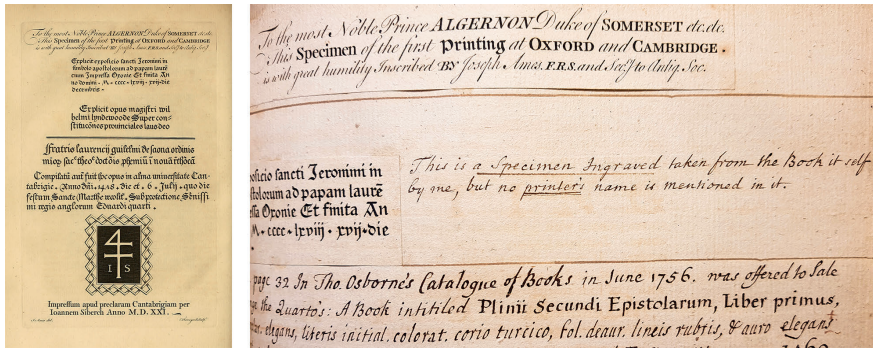 To the most Noble Prince ALGERNON Duke of SOMERSET &c. &c.
This Specimen of the first Printing at OXFORD and CAMBRIDGE.
is with great humility Inscribed BY Joseph Ames. F.R.S. and Secry. to Antiq. Soc.
Explicit exposicio sancti Jeronimi in
simbolo apostolorum ad papam laure
cium Impressa Oxonie Et finita An
no domini . M . cccc . lxviij . xvij . die
decembris .
Explicit opus magistri wil
helmi lyndewoode Super con-
stituciones provinciales laus deo
Fratris laurencij guilelmi de saona ordinis
Compilatum autem fuit hoc opus in alma universitate Can-
tabrigie . Anno Dñi . 1478 . die et . 6 . Julij . quo die
festum Sancte Marthe
mi regis anglorum Eduardi quarti .
I S
Impressum apud preclaram Cantabrigiam per
Ioannem Siberch Anno M.D.XXI.
To the most Noble Prince ALGERNON Duke of SOMERSET &c. &c.
This Specimen of the first Printing at OXFORD and CAMBRIDGE.
is with great humility Inscribed BY Joseph Ames. F.R.S. and Secry. to Antiq. Soc.
posicio sancti Jeronimi in
stolorum ad papam laurē
ssa Oxonie Et finita An
. M . cccc . lxviij . xvij . die
This is a Specimen Ingraved taken from the Book it self
by me, but no printer's name is mentioned in it.
page 32 In Tho. Osborne's Catalogue of Books in June 1756. was offered to Sale
the Quarto's: A Book intitiled Plinii Secundi Epistolarum, Liber primus,
elegans, literis initial. colorat. corio turcico, fol. deaur. lineis rubris, & auro elegans